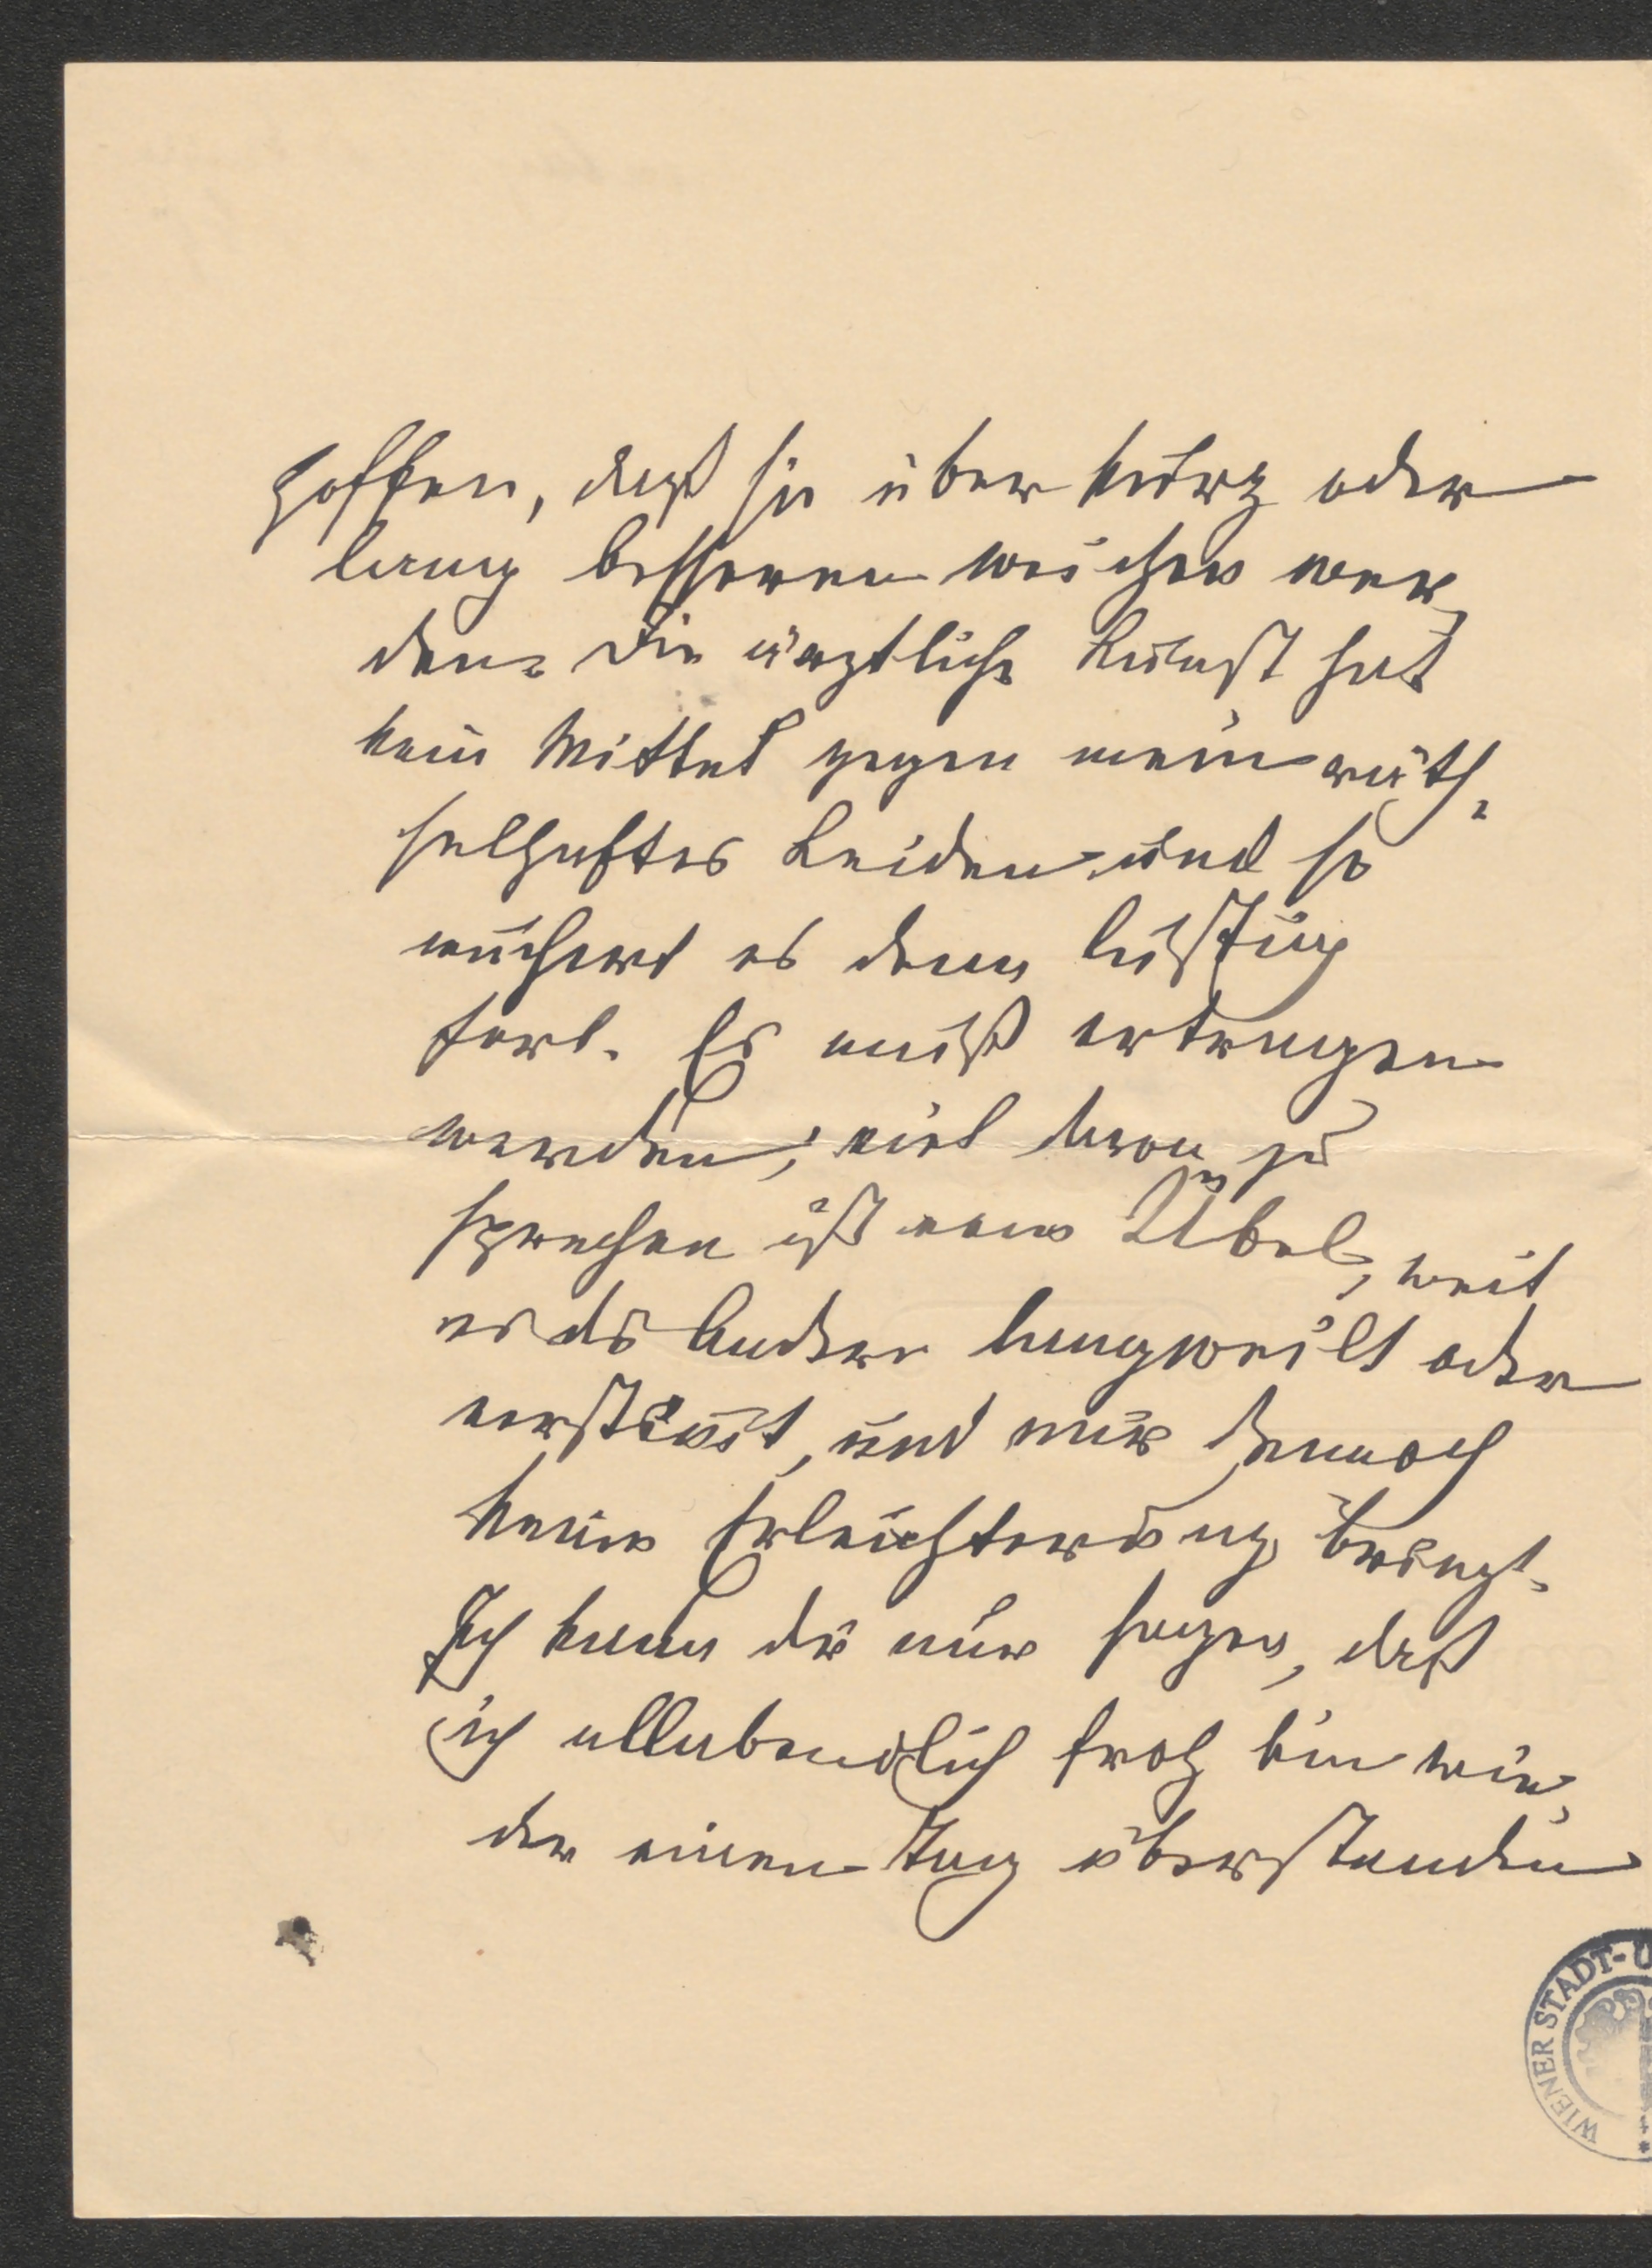 hoffen, daß sie über kurz oder
lang besseren weichen wer-
den. Die ärztliche Kunst hat
kein Mittel gegen mein räth-
selhaftes Leiden und so
wuchert es denn lustig
fort. Es muß ertragen
werden; viel davon zu
sprechen ist vom Übel, weil
es die Andern langweilt oder
verstimmt, und mir dennoch
keine Erleichterung bringt.
Ich kann dir nur sagen, daß
ich allabendlich froh bin wie-
der einen Tag überstanden
WIENER STADT-